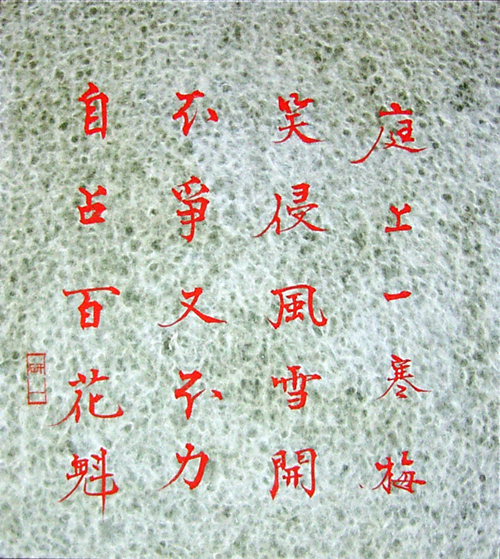 庭上一寒梅
笑侵風雪開
不爭又不力
自占百花魁